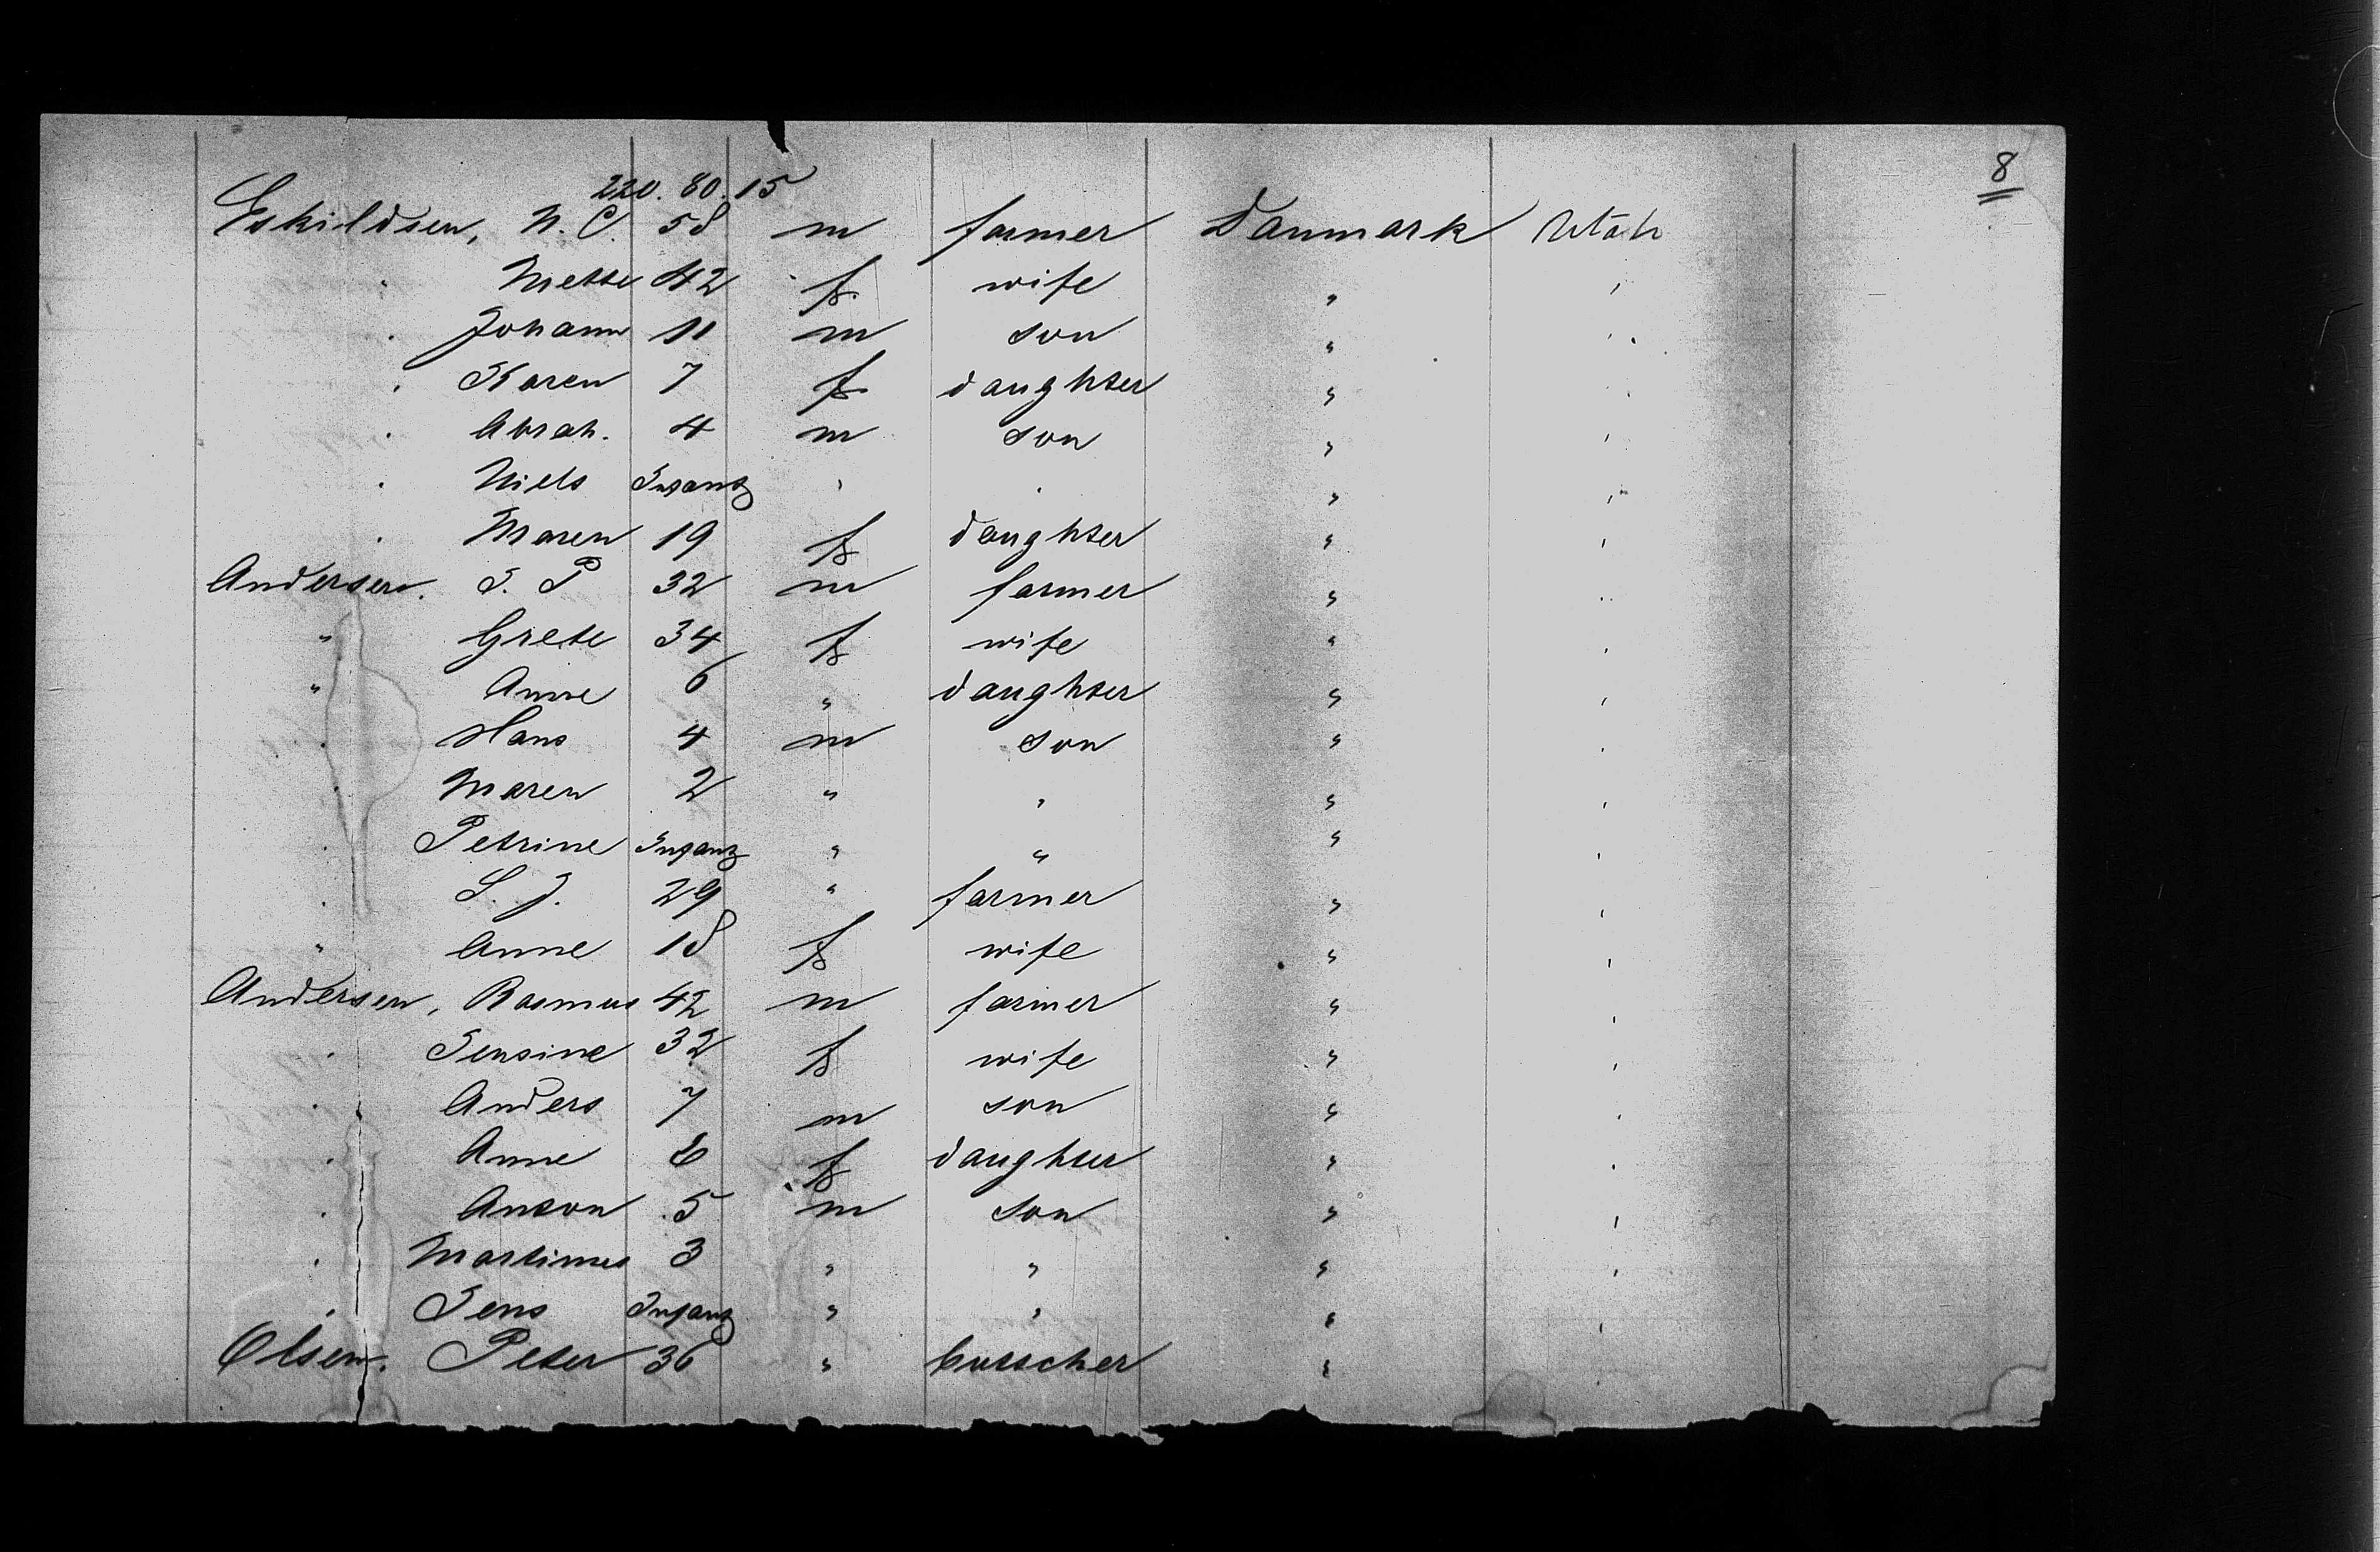 8
220. 80. 15
Eskildsen, N. C. 58 m farmer Danmark Utah
" Mette 42 f wife " "
" Johann 11 m son " "
" Karen 7 f daughter " "
" Abrah. 4 m son " "
" Niels Infant " " " "
" Maren 19 f daughter " "
Andersen. J. P 32 m farmer " "
" Grete 34 f wife " "
" Anne 6 " daughter " "
" Hans 4 m son " "
" Maren 2 " " " "
" Petrine Infant " " " "
" S. J. 29 " farmer " "
" Anne 18 f wife " "
Andersen, Rasmus 42 m farmer " "
" Jensine 32 f wife " "
" Anders 7 m son " "
" Anne 6 f daughter " "
" Anton 5 m son " "
" Martinus 3 " " " "
" Jens Infant " " " "
Olsen. Peter 36 " butscher " "